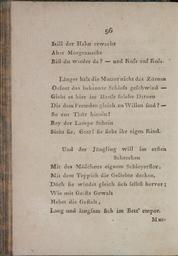 56
Still der Hahn erwacht
Aber Morgennacht
Bist du wieder da? — und Kuſs auf Kuſs.
Länger hält die Mutter nicht das Zürnen
Oefnet das bekannte Schloſs geschwind —
Giebt es hier im Hause solche Dirnen
Die dem Fremden gleich zu Willen sind? —
So zur Thür hinein!
Bey der Lampe Schein
Sieht sie, Gott! sie sieht ihr eigen Kind.
Und der Jüngling will im ersten
Schrecken
Mit des Mädchens eignem Schleyerflor,
Mit dem Teppich die Geliebte decken,
Doch sie windet gleich sich selbst hervor;
Wie mit Geists Gewalt
Hebet die Gestalt,
Lang und langsam sich im Bett' empor.
Mut-